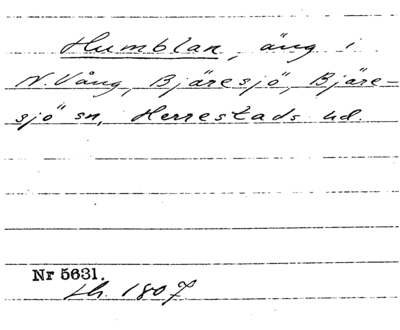 Humblan, äng i
N. Vång, Bjäresjö, Bjäre-
sjö sn, Herrestads hd.
Nr 5631.
Lh. 1807